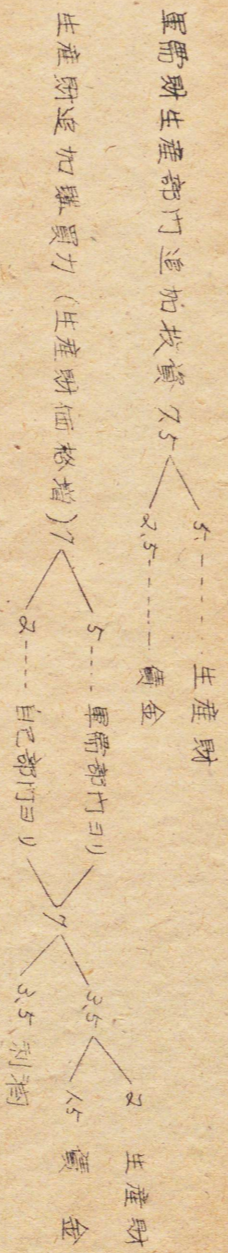 軍需財生産部門追加投資 7.5 < 5 ...... 生産財
2.5 ...... 賃金
生産財追加購買力（生産財価格増）7 < 5 ..... 軍需部門ヨリ
2 ..... 自己部門ヨリ > 7 < 3.5 < 2 生産財
1.5 賃金
3.5 利潤